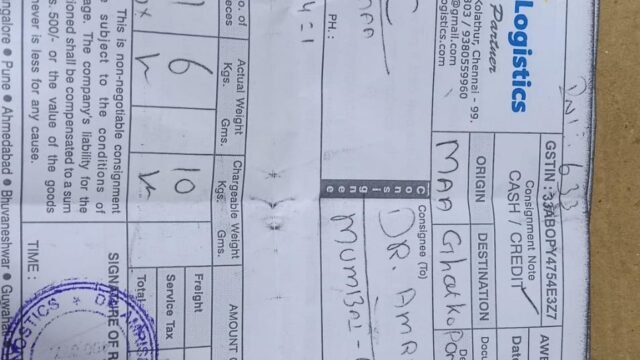 Logistics
Partner
Kolathur, Chennai - 99.
803 / 9380559960
@gmail.com
ogistics.com
GSTIN : 33ABOPY4754E3Z7
Consignment Note
CASH / CREDIT
AWB
Date
ORIGIN
DESTINATION
MAA
Ghatkopar
PH.:
Consignee
Consignee (To)
DR. AMR
MUMBAI -
No. of
Pieces
Actual Weight
Kgs.
Gms.
Chargeable Weight
Kgs.
Gms.
AMOUNT
6
10
Freight
Service Tax
Total
This is non-negotiable consignment
subject to the conditions of
age. The company's liability for the
tioned shall be compensated to a sum
s. 500/- or the value of the goods
never is less for any cause.
SIGNATURE OF R
TIME :
angalore • Pune • Ahmedabad • Bhuvaneshwar • Guwaha